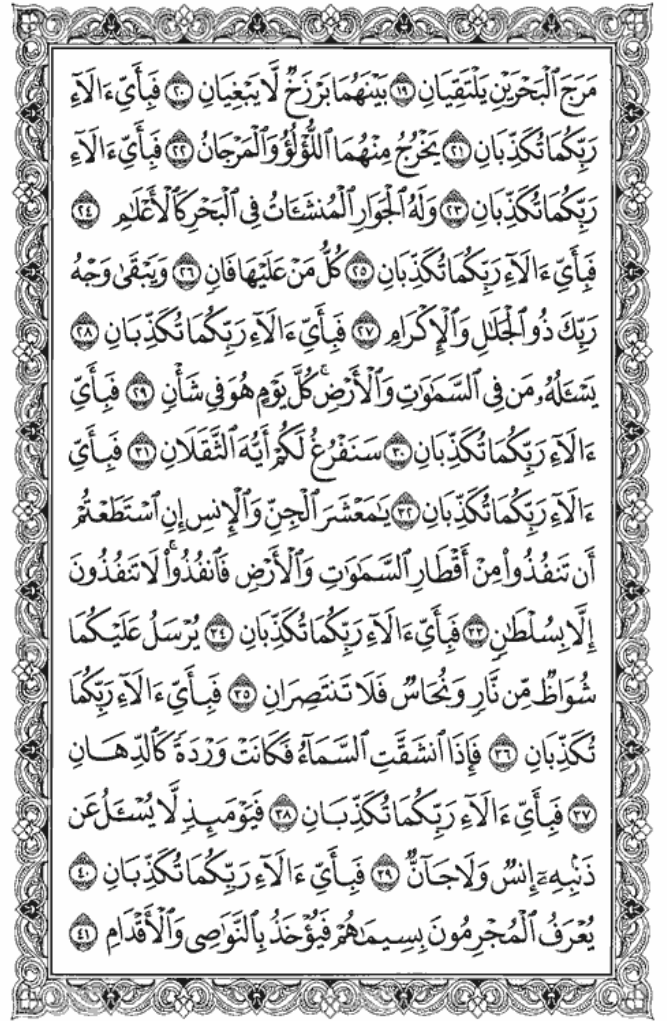 مَرَجَ ٱلْبَحْرَيْنِ يَلْتَقِيَانِ ١٩ بَيْنَهُمَا بَرْزَخٌ لَّا يَبْغِيَانِ ٢٠ فَبِأَىِّ ءَالَآءِ
رَبِّكُمَا تُكَذِّبَانِ ٢١ يَخْرُجُ مِنْهُمَا ٱللُّؤْلُؤُ وَٱلْمَرْجَانُ ٢٢ فَبِأَىِّ ءَالَآءِ
رَبِّكُمَا تُكَذِّبَانِ ٢٣ وَلَهُ ٱلْجَوَارِ ٱلْمُنشَـَٔاتُ فِى ٱلْبَحْرِ كَٱلْأَعْلَـٰمِ ٢٤
فَبِأَىِّ ءَالَآءِ رَبِّكُمَا تُكَذِّبَانِ ٢٥ كُلُّ مَنْ عَلَيْهَا فَانٍ ٢٦ وَيَبْقَىٰ وَجْهُ
رَبِّكَ ذُو ٱلْجَلَـٰلِ وَٱلْإِكْرَامِ ٢٧ فَبِأَىِّ ءَالَآءِ رَبِّكُمَا تُكَذِّبَانِ ٢٨
يَسْـَٔلُهُۥ مَن فِى ٱلسَّمَـٰوَٰتِ وَٱلْأَرْضِ ۚ كُلَّ يَوْمٍ هُوَ فِى شَأْنٍ ٢٩ فَبِأَىِّ
ءَالَآءِ رَبِّكُمَا تُكَذِّبَانِ ٣٠ سَنَفْرُغُ لَكُمْ أَيُّهَ ٱلثَّقَلَانِ ٣١ فَبِأَىِّ
ءَالَآءِ رَبِّكُمَا تُكَذِّبَانِ ٣٢ يَـٰمَعْشَرَ ٱلْجِنِّ وَٱلْإِنسِ إِنِ ٱسْتَطَعْتُمْ
أَن تَنفُذُوا۟ مِنْ أَقْطَارِ ٱلسَّمَـٰوَٰتِ وَٱلْأَرْضِ فَٱنفُذُوا۟ ۚ لَا تَنفُذُونَ
إِلَّا بِسُلْطَـٰنٍ ٣٣ فَبِأَىِّ ءَالَآءِ رَبِّكُمَا تُكَذِّبَانِ ٣٤ يُرْسَلُ عَلَيْكُمَا
شُوَاظٌ مِّن نَّارٍ وَنُحَاسٌ فَلَا تَنتَصِرَانِ ٣٥ فَبِأَىِّ ءَالَآءِ رَبِّكُمَا
تُكَذِّبَانِ ٣٦ فَإِذَا ٱنشَقَّتِ ٱلسَّمَآءُ فَكَانَتْ وَرْدَةً كَٱلدِّهَانِ
٣٧ فَبِأَىِّ ءَالَآءِ رَبِّكُمَا تُكَذِّبَانِ ٣٨ فَيَوْمَئِذٍ لَّا يُسْـَٔلُ عَن
ذَنۢبِهِۦٓ إِنسٌ وَلَا جَآنٌّ ٣٩ فَبِأَىِّ ءَالَآءِ رَبِّكُمَا تُكَذِّبَانِ ٤٠
يُعْرَفُ ٱلْمُجْرِمُونَ بِسِيمَـٰهُمْ فَيُؤْخَذُ بِٱلنَّوَٰصِى وَٱلْأَقْدَامِ ٤١